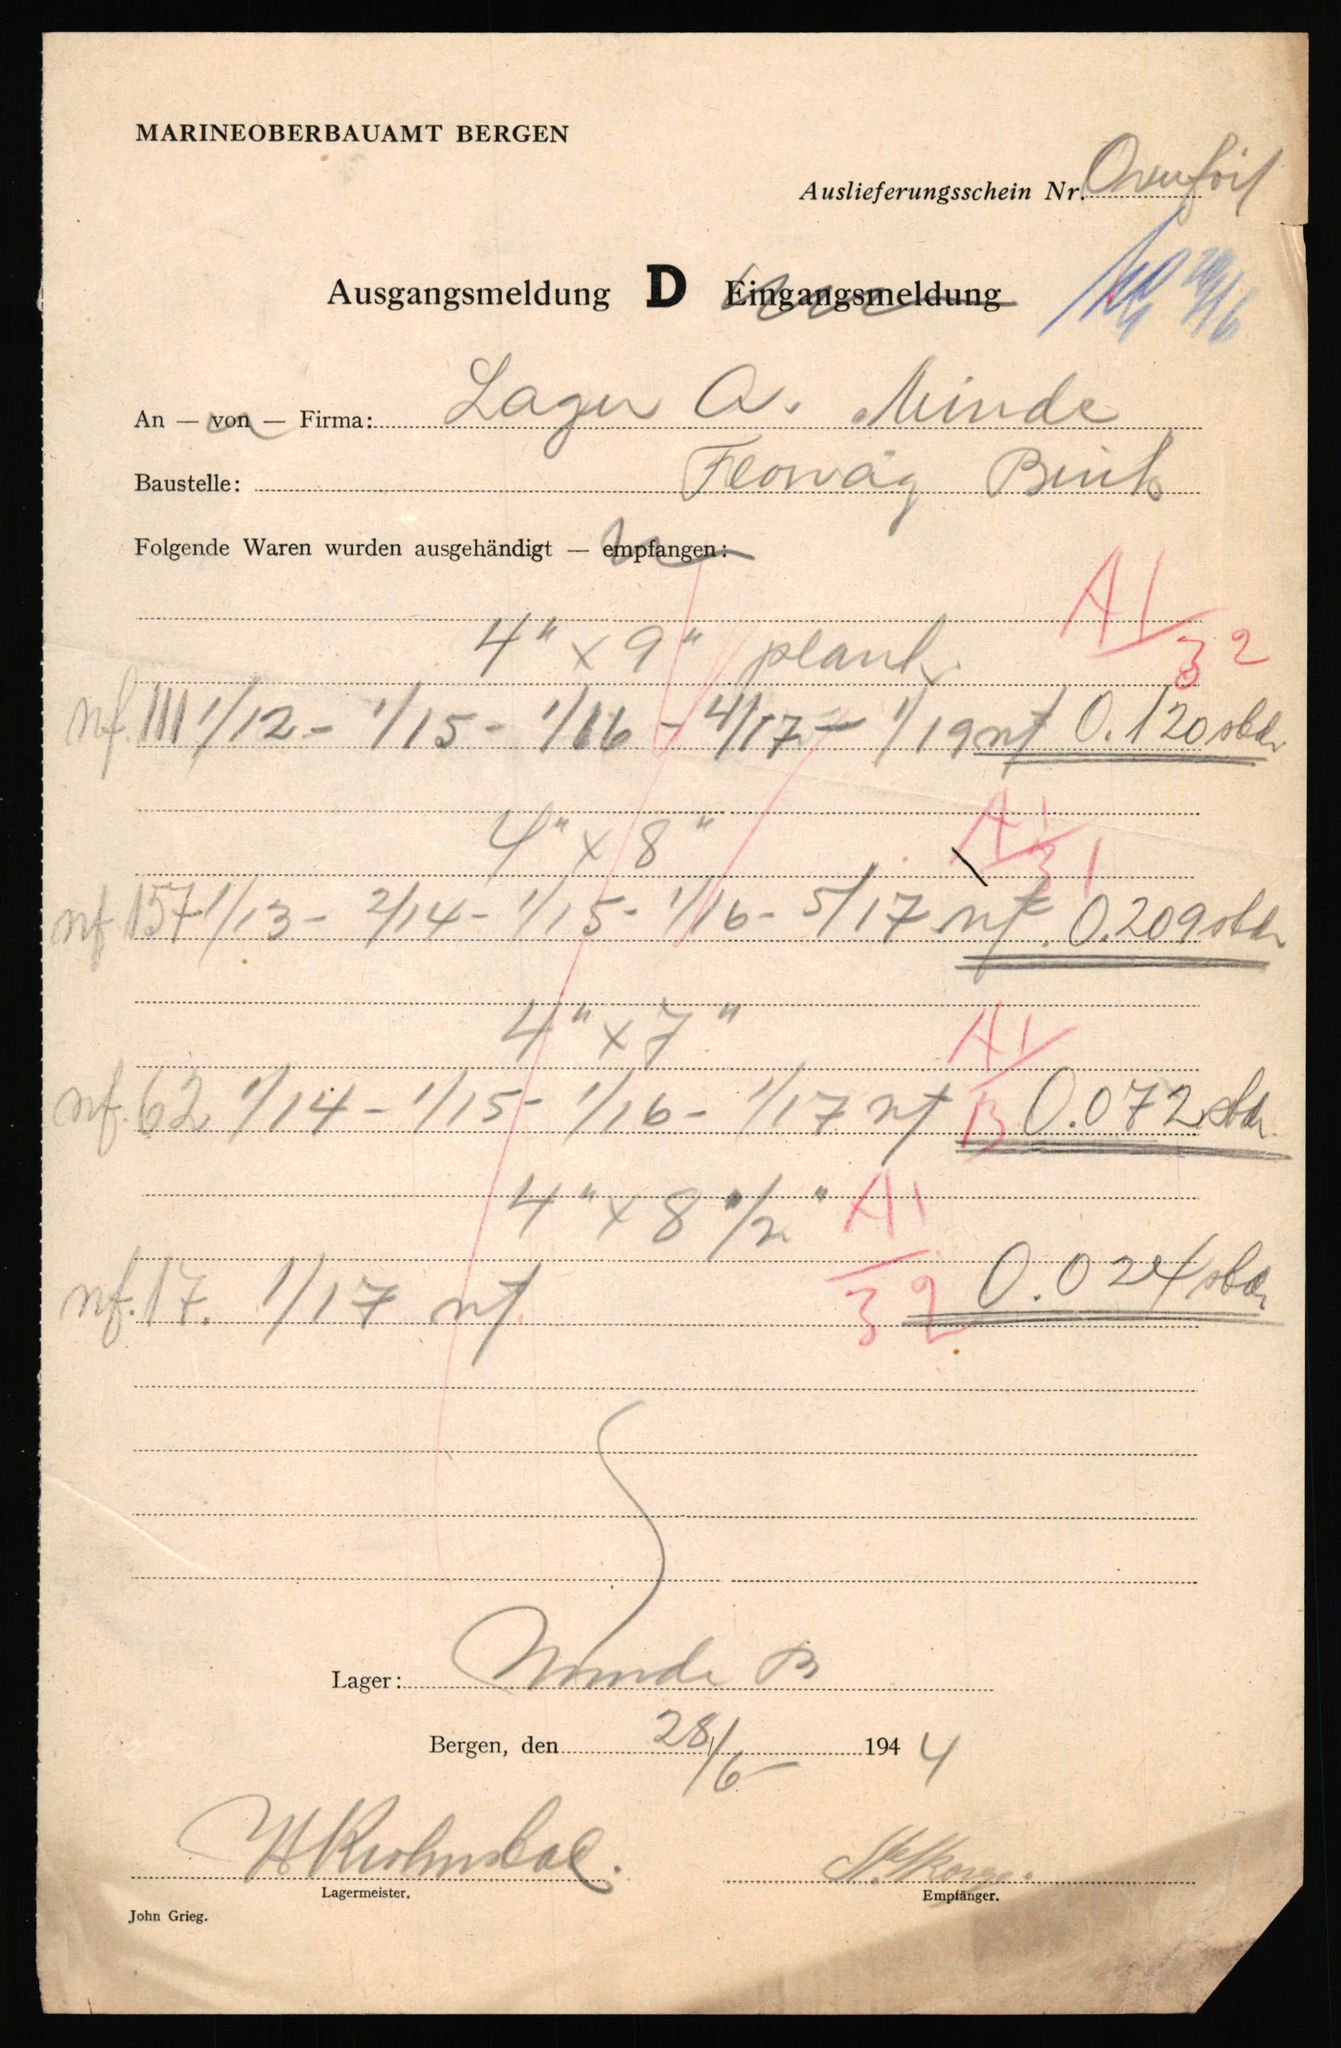 MARINEOBERBAUAMT BERGEN
Auslieferungsschein Nr.
Ausgangsmeldung D Eingangsmeldung
An — von — Firma: Lager A. Minde
Baustelle: Florvåg
Folgende Waren wurden ausgehändigt — empfangen:
A1/32
4" x 9" plank.
nf. 111 1/12 - 1/15 - 1/16 - 4/17 - 1/19 nf 0.120 stdr
4" x 8" A1/31
nf 157 1/13 - 2/14 - 1/15 - 1/16 - 5/17 nf. 0.209 stdr
4" x 7" A1/B
nf. 62 1/14 - 1/15 - 1/16 - 1/17 nf 0.072 stdr.
4" x 8 1/2" A1/32
nf. 17. 1/17 nf 0.024 stdr
Lager: Minde B
Bergen, den 28/6 - 1944
Lagermeister.
Empfänger.
John Grieg.